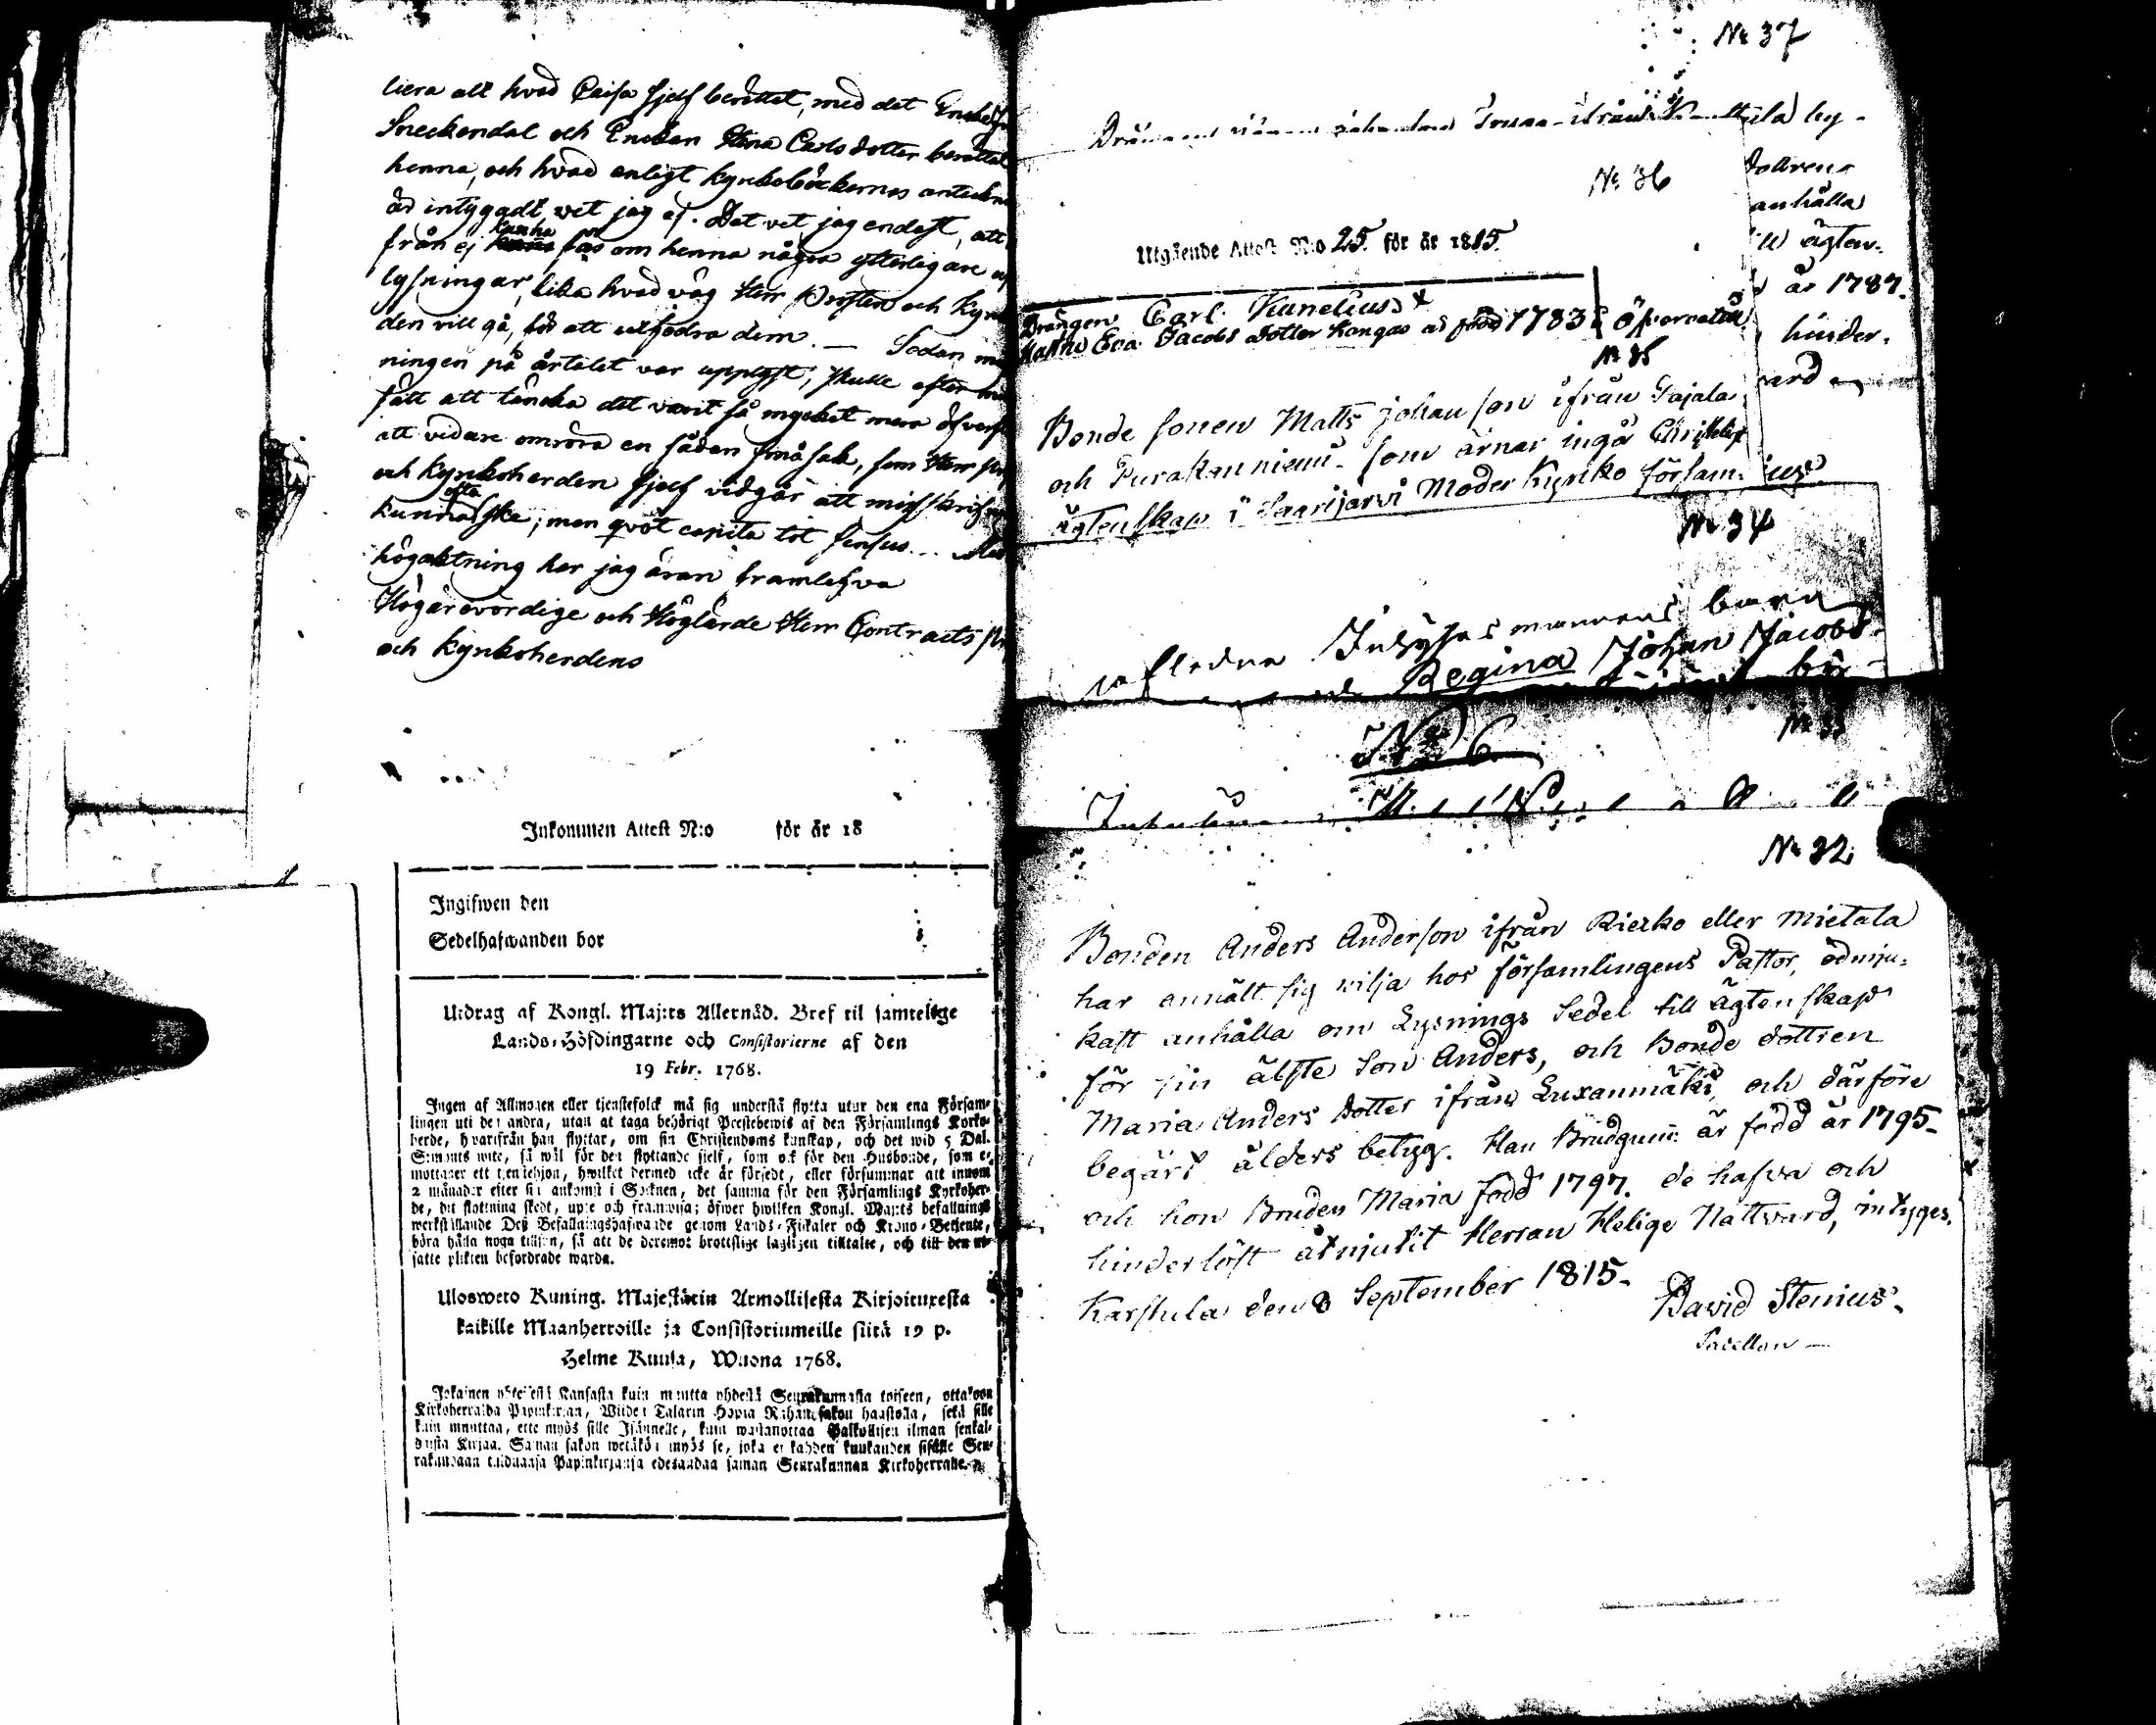 livera all hvad Caisa sjelf berättat, med det Enckefru
Sneckendal och Enckan Stina Carls dotter berättat
henne, och hvad enligt kyrkoböckernes anteckn
är intygadt, vet jag ej. Det vet jag endast, att
från ej kunna fås om henne några ytterligare up
lysningar, lika hvad väg Herr Prosten och Kyrk
den vill gå, för att utfodra dem. — Sedan me
ningen på årtalet var upplyst, skulle efter mi
sätt att täncka det varit så mycket mera öfverfl
att vidare omröra en sådan småsak, som Herr Pr
och Kyrkoherden sjelf vidgår att misskrifn
kunna ofta ske; men qvot capita tot sensus. — Med
högaktning har jag äran framlefva
Högärevördige och Höglärde Herr Contracts Pr
och Kyrkoherdens
Inkommen Attest N:o för år 18
Ingifwen den
Sedelhafwanden bor
Utdrag af Kongl. Maj:ts Allernåd. Bref til samtelige
Lands-Höfdingarne och Consistorierne af den
19 Febr. 1768.
Ingen af Allmogen eller tjenstefolck må sig understå flytta utur den ena Försam-
lingen uti den andra, utan at taga behörigt Prestebewis af den Församlings Kyrko-
herde, hwarifrån han flyttar, om sin Christendoms kunskap, och det wid 5 Dal.
S:mynts wite, så wäl för den flyttande sielf, som ock för den Husbonde, som e-
mottager ett tjenstehjon, hwilket dermed icke är försedt, eller försummar att innom
2 månader efter sin ankomst i Socknen, det samma för den Församlings Kyrkoher-
de, dit flyttning skedt, upte och framwisa; öfwer hwilken Kongl. Maj:ts befallnings
werkställande Deß Befallningshafwande genom Lands-Fiskaler och Krono-Betjente,
böra hålla noga tillsyn, så att de deremot brottslige lagligen tilltalte, och till den ut-
satte plikten befordrade warda.
Uloswetö Kuning. Majestätin Armollisesta Kirjoituxesta
kaikille Maanherroille ja Consistoriumeille siitä 19 p.
Helme Kuusa, Wuona 1768.
Jokainen yhteisestä Kansasta kuin muutta yhdestä Seurakunnasta toiseen, ottakoon
Kirkoherralda Papinkirjan, Wiiden Talarin Hopia Rahan sakon haastolla, sekä sille
kuin muuttaa, ette myös sille Isännelle, kuin wastanottaa Palkollisen ilman senkal-
daista Kirjaa. Saman sakon wetäkön myös se, joka ei kahden kuukauden sisälle Seu-
rakundaan tulduansa Papinkirjansa edesandaa saman Seurakunnan Kirkoherralle.
N: 37
dottren
anhålla
till ägten-
år 1787.
hinder-
N: 36
Utgående Attest N:o 25. för år 1815.
Drängen Carl Kunelius
Hustru Eva Jacobs dotter Kangas är född 1783
N: 35
Bonde sonen Matts Johan son ifrån Pajala
och Purakanniemi som ärnar ingå Christeligt
ägtenskap i Saarijärvi Moder Kyrko församl
N: 34
aflednen Inhyses mannens barn
Regina Johan Jacobs
N: 33
N: 6
N: 32
Bonden Anders Anderson ifrån Rierko eller Mietala
har anmält sig vilja hos församlingens Pastor, ödmju-
kast anhålla om Lysnings Sedel till ägtenskap
för sin älste Son Anders, och Bonde dottren
Maria Anders dotter ifrån Luxanmäki, och därföre
begärt ålders betyg. Han Brudgum: är född år 1795-
och hon Bruden Maria född 1797. de hafva och
hinderlöst åtnjutit Herran Helige Nattvard, intyges.
Karstula den 8 September 1815-
David Stenius.
Sacellan —